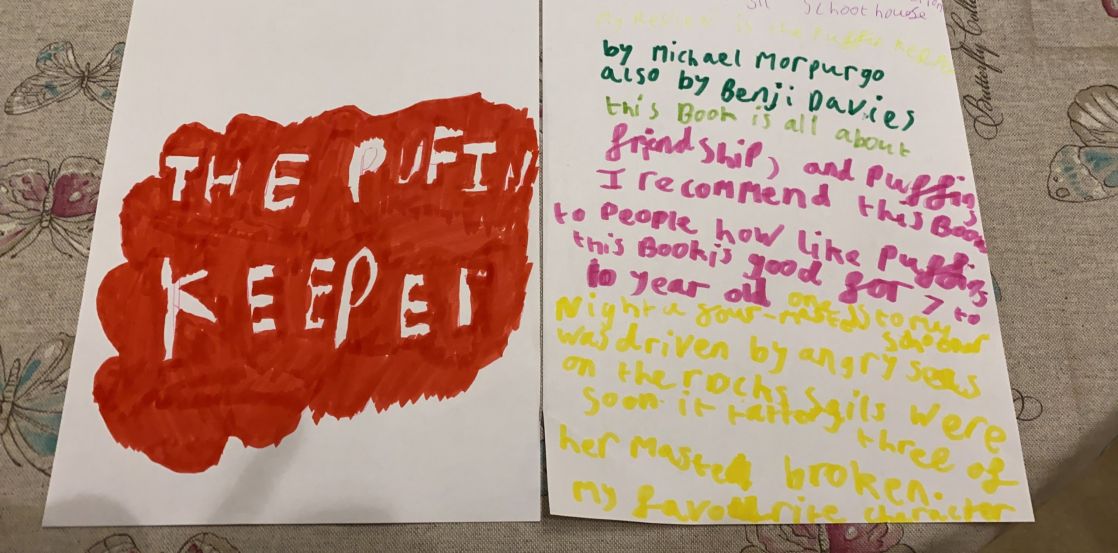 THE PUFIN
KEEPER
schoolhouse
my Review is the Puffin keeper
by Michael Morpurgo
also by Benji Davies
this Book is all about
friendship, and Puffins
I recommend this Book
to People how like Puffins
this Book is good for 7 to
10 year old
one story
Night a four-masted schooner
was driven by angry seas
on the rocks Sails were
soon it three of
her Masted broken.
my favourite character
Butterfly